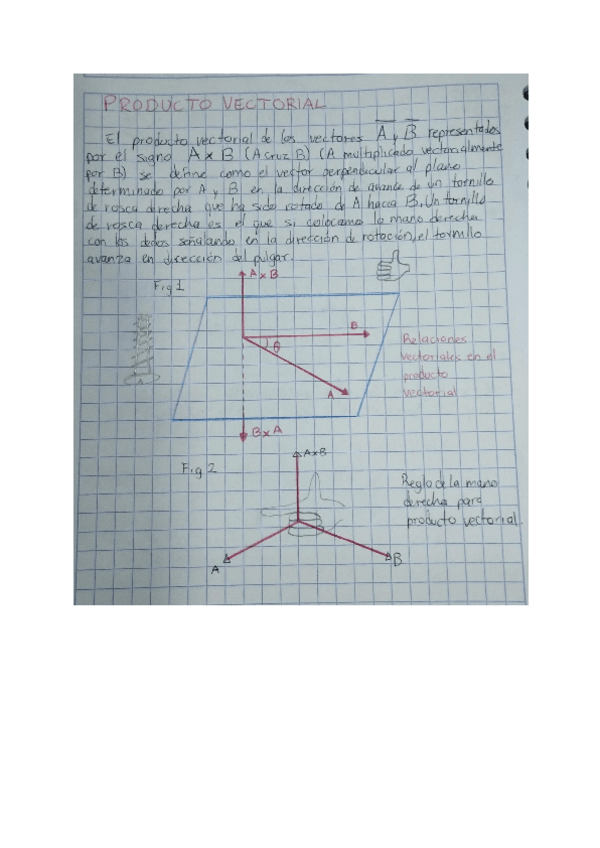 PRODUCTO VECTORIAL
El producto vectorial de los vectores A y B representados
por el signo A x B (A cruz B) (A multiplicado vectorialmente
por B) se define como el vector perpendicular al plano
determinado por A y B en la dirección de avance de un tornillo
de rosca direcha que ha sido rotado de A hacia B. Un tornillo
de rosca derecha es el que si colocamo la mano derecha
con los dedos señalando en la dirección de rotación, el tornillo
avanza en dirección del pulgar.
Fig 1
A x B
B
θ
A
Relaciones
vectoriales en el
producto
vectorial
B x A
Fig 2
AxB
Regla de la mano
derecha para
producto vectorial
A
B